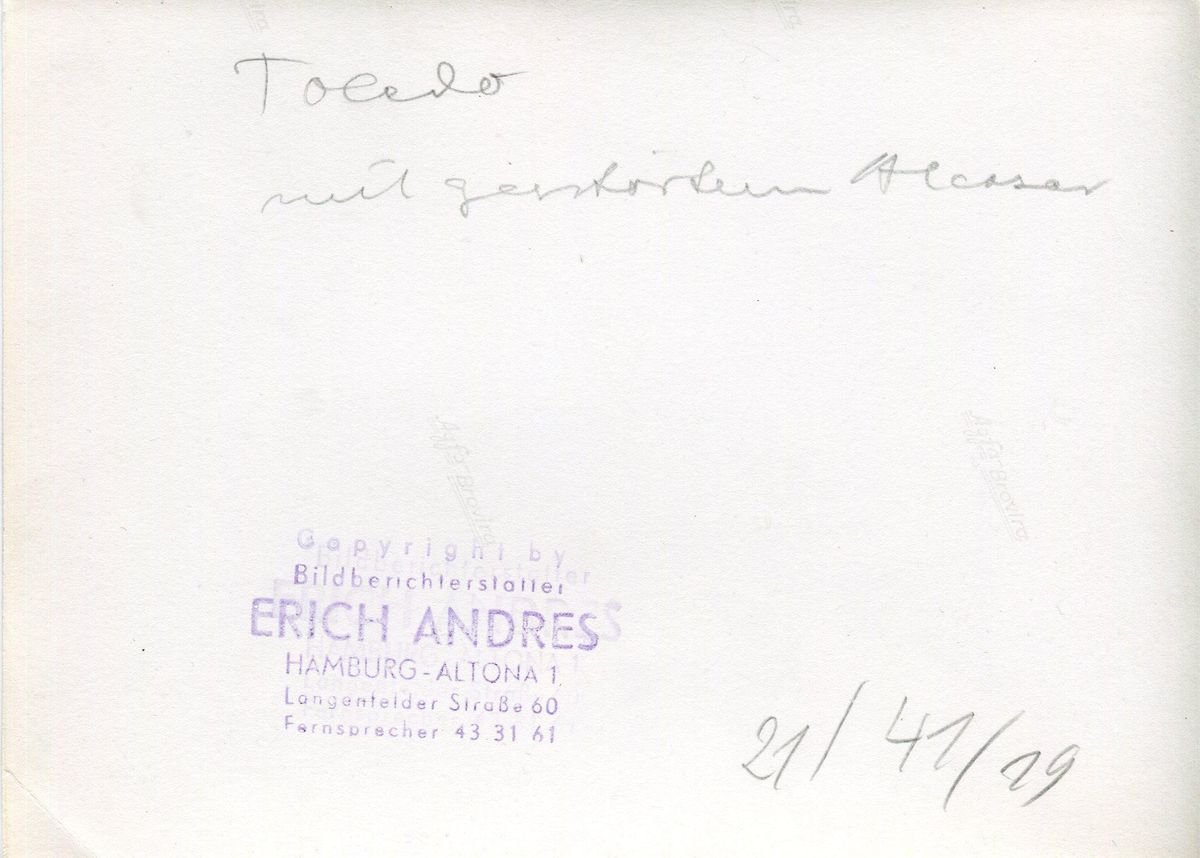 Toledo
mit zerstörtem Alcasar
Agfa Brovira
Agfa Brovira
Copyright by
Bildberichterstatter
ERICH ANDRES
HAMBURG-ALTONA 1
Langenfelder Straße 60
Fernsprecher 43 31 61
21/41/19